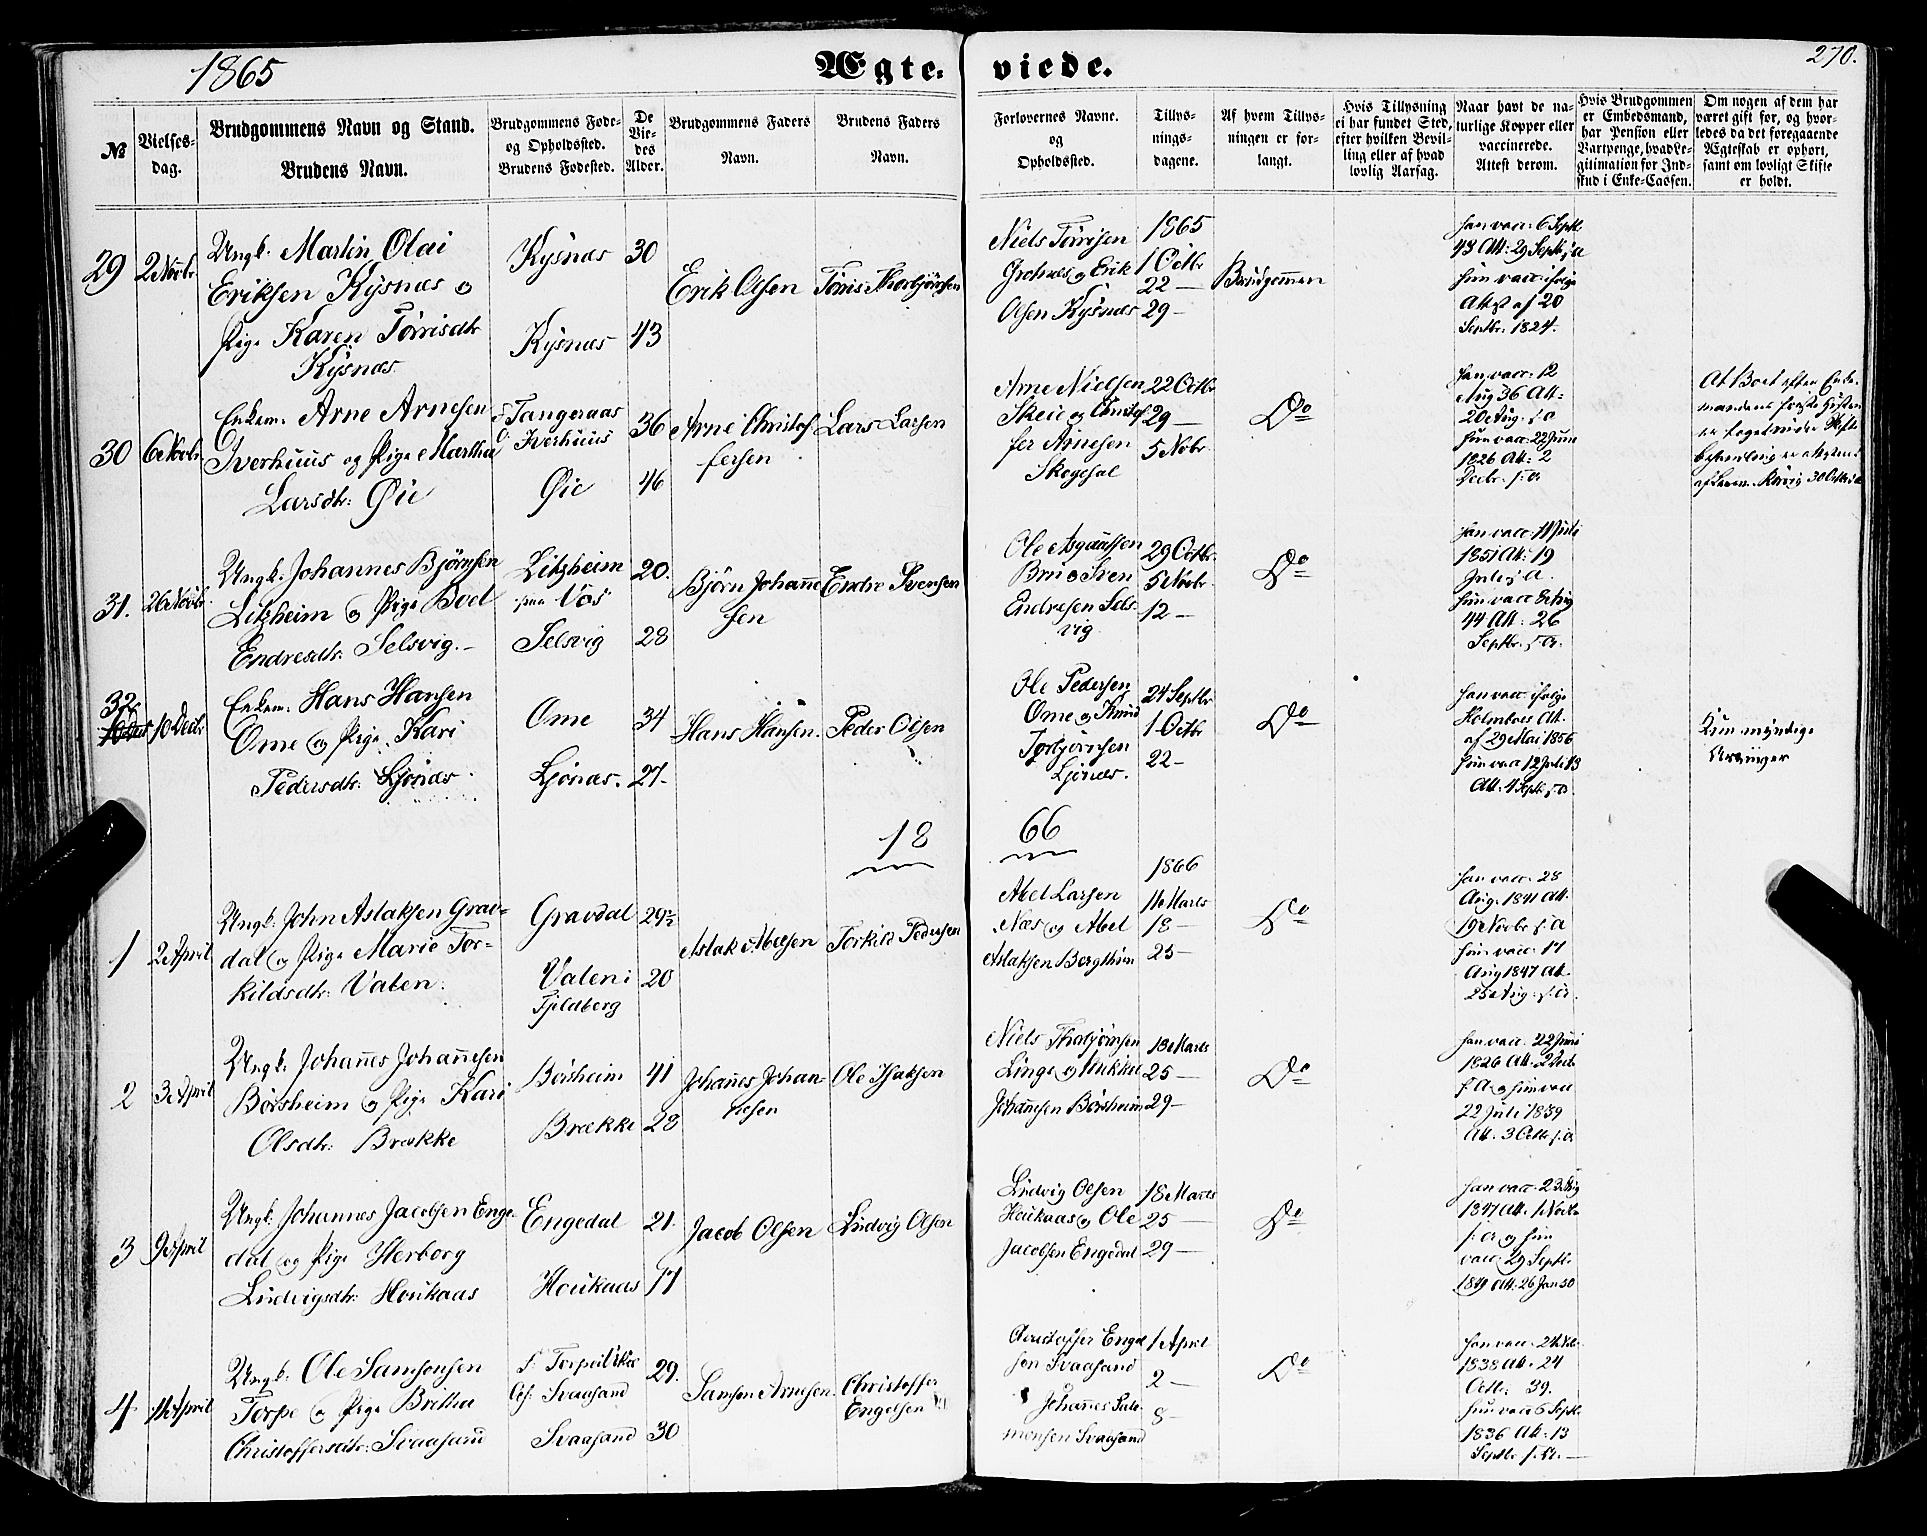 1865
Ægte-
viede.
270.
№
Vielses-
dag.
Brudgommens Navn og Stand.
Brudens Navn.
Brudgommens Føde-
og Opholdssted.
Brudens Fødested.
De
Vie-
des
Alder.
Brudgommens Faders
Navn.
Brudens Faders
Navn.
Forlovernes Navne.
og
Opholdssted.
Tillys-
nings-
dagene.
Af hvem Tillys-
ningen er for-
langt.
Hvis Tillysning
ei har fundet Sted,
efter hvilken Bevil-
ling eller af hvad
lovlig Aarsag.
Naar havt de na-
turlige Kopper eller
vaccinerede.
Attest derom.
Hvis Brudgommen
er Embedsmand,
har Pension eller
Vartpenge, hvad Le-
gitimation for Ind-
skud i Enke-Cassen.
Om nogen af dem har
været gift før, og hvor-
ledes da det foregaaende
Ægteskab er ophørt,
samt om lovligt Skifte
er holdt.
29
2 Novbr
Ungk. Martin Olai
Eriksen Kysnæs o
Pige Karen Tørrisdtr
Kysnæs
Kysnæs 30
Kysnæs 43
Erik Olsen
Tørris Thorbjørnsen
Niels Tørrisen
Erik
Olsen Kysnæs
1865
1 Octbr
22 —
29 —
Brudgommen
han vacc: 6 Septbr
43 Att: 29 Septbr s. a
hun vacc: ifølge
Attest af 20
Septbr. 1824.
30
6 Novbr.
Enkem: Arne Arnesen
Iverhuus og Pige Martha
Larsdtr: Øie
Tangeraas
Iverhuus 36
Øie 46
Arne Christof-
fersen
Lars Larsen
Arne Nielsen
Skeie og Christof
fer Arnesen
22 Octbr
29 —
5 Novbr
Do
han vacc: 12
Aug 36 Att:
20 Aug. s. a
hun vacc: 22 Juni
1826 Att: 2
Decbr. s. a
31.
26 Novbr.
Ungk. Johannes Bjørnsen
Litzheim o Pige Boel
Endresdtr: Selsvig.—
Litzheim
paa Vos 20.
Selsvig 28
Bjørn Johanne
sen
Endre Svensen
Ole
Endresen Sels-
vig
29 Octbr.
5 Novbr.
12 —
Do
1851 Att: 19
Juli s. a.
hun vacc
44 Att: 26
Septbr. s. a.
32
10 Decbr
Enkem: Hans Hansen
Ome og Pige Kari
Pedersdtr: Ljønæs
Ome 34
Ljønæs. 27.
Hans Hansen.
Peder Olsen
Ole Pedersen
Ome og Knud
Torbjørnsen
Ljønæs.
24 Septbr
1 Octbr
22 —
Do
han vacc: ifølge
Holmboes Att.
af 29 Mai 1856
hun vacc 12 Juli 43
Att. 4 Septbr. s. a.
Kun myndige
Arvinger
18
66
1
2 April
Ungk. John Aslaksen Grav-
dal og Pige Marie Tor-
kildsdtr: Valen.
Gravdal 29½
Valen i 20
Fjeldberg
Aslak Abelsen
Torkild Pedersen
Abel Larsen
Næs og Abel
Aslaksen Bergthun
1866
11 Marts
18 —
25 —
Do
han vacc: 28
Aug. 1841 Att.
19 Novbr s. a
hun vacc: 17
Aug 1847 Att.
25 Aug: s. a.
2
3 April
Ungk. Johannes Johannesen
Børsheim o Pige Kari
Olsdtr: Brække
Børsheim 41
Brække 28
Johannes Johan-
nesen
Ole Isaksen
Niels Thorbjørnsen
Linge og Mikkel
Johannesen Børsheim
18 Marts
25 —
29 —
Do
han vacc: 22 Juni
1826 Att. 2 Decbr
s. a. og hun vacc
22 Juli 1839
Att. 3 Octbr s. a.
3
9 April
Ungk. Johannes Jacobsen Enge-
dal og Pige Herborg
Ludvigsdtr: Houkaas
Engedal 21.
Houkaas 17
Jacob Olsen
Ludvig Olsen
Ludvig Olsen
Houkaas og Ole
Jacobsen Engedal
18 Marts
25 —
29 —
Do
han vacc: 23 Aug
1847 Att. 1 Novbr
s. a. og hun
vacc: 29 Septbr
1849 Att: 26 Jan 50
4
11 April
Ungk. Ole Samsonsen
Torpe o Pige Britha
Christoffersdtr: Svaasand
Svaasand 29.
Svaasand 30
Samson Arnesen.
Christoffer
Engelsen
Christoffer Engel
sen Svaasand
Johannes Salo-
monsen Svaasand
1 April
2 —
8 —
Do
1838 Att. 24
Octbr. 39.
hun vacc 6 Septbr.
1836 Att. 13
Septbr s. a. —